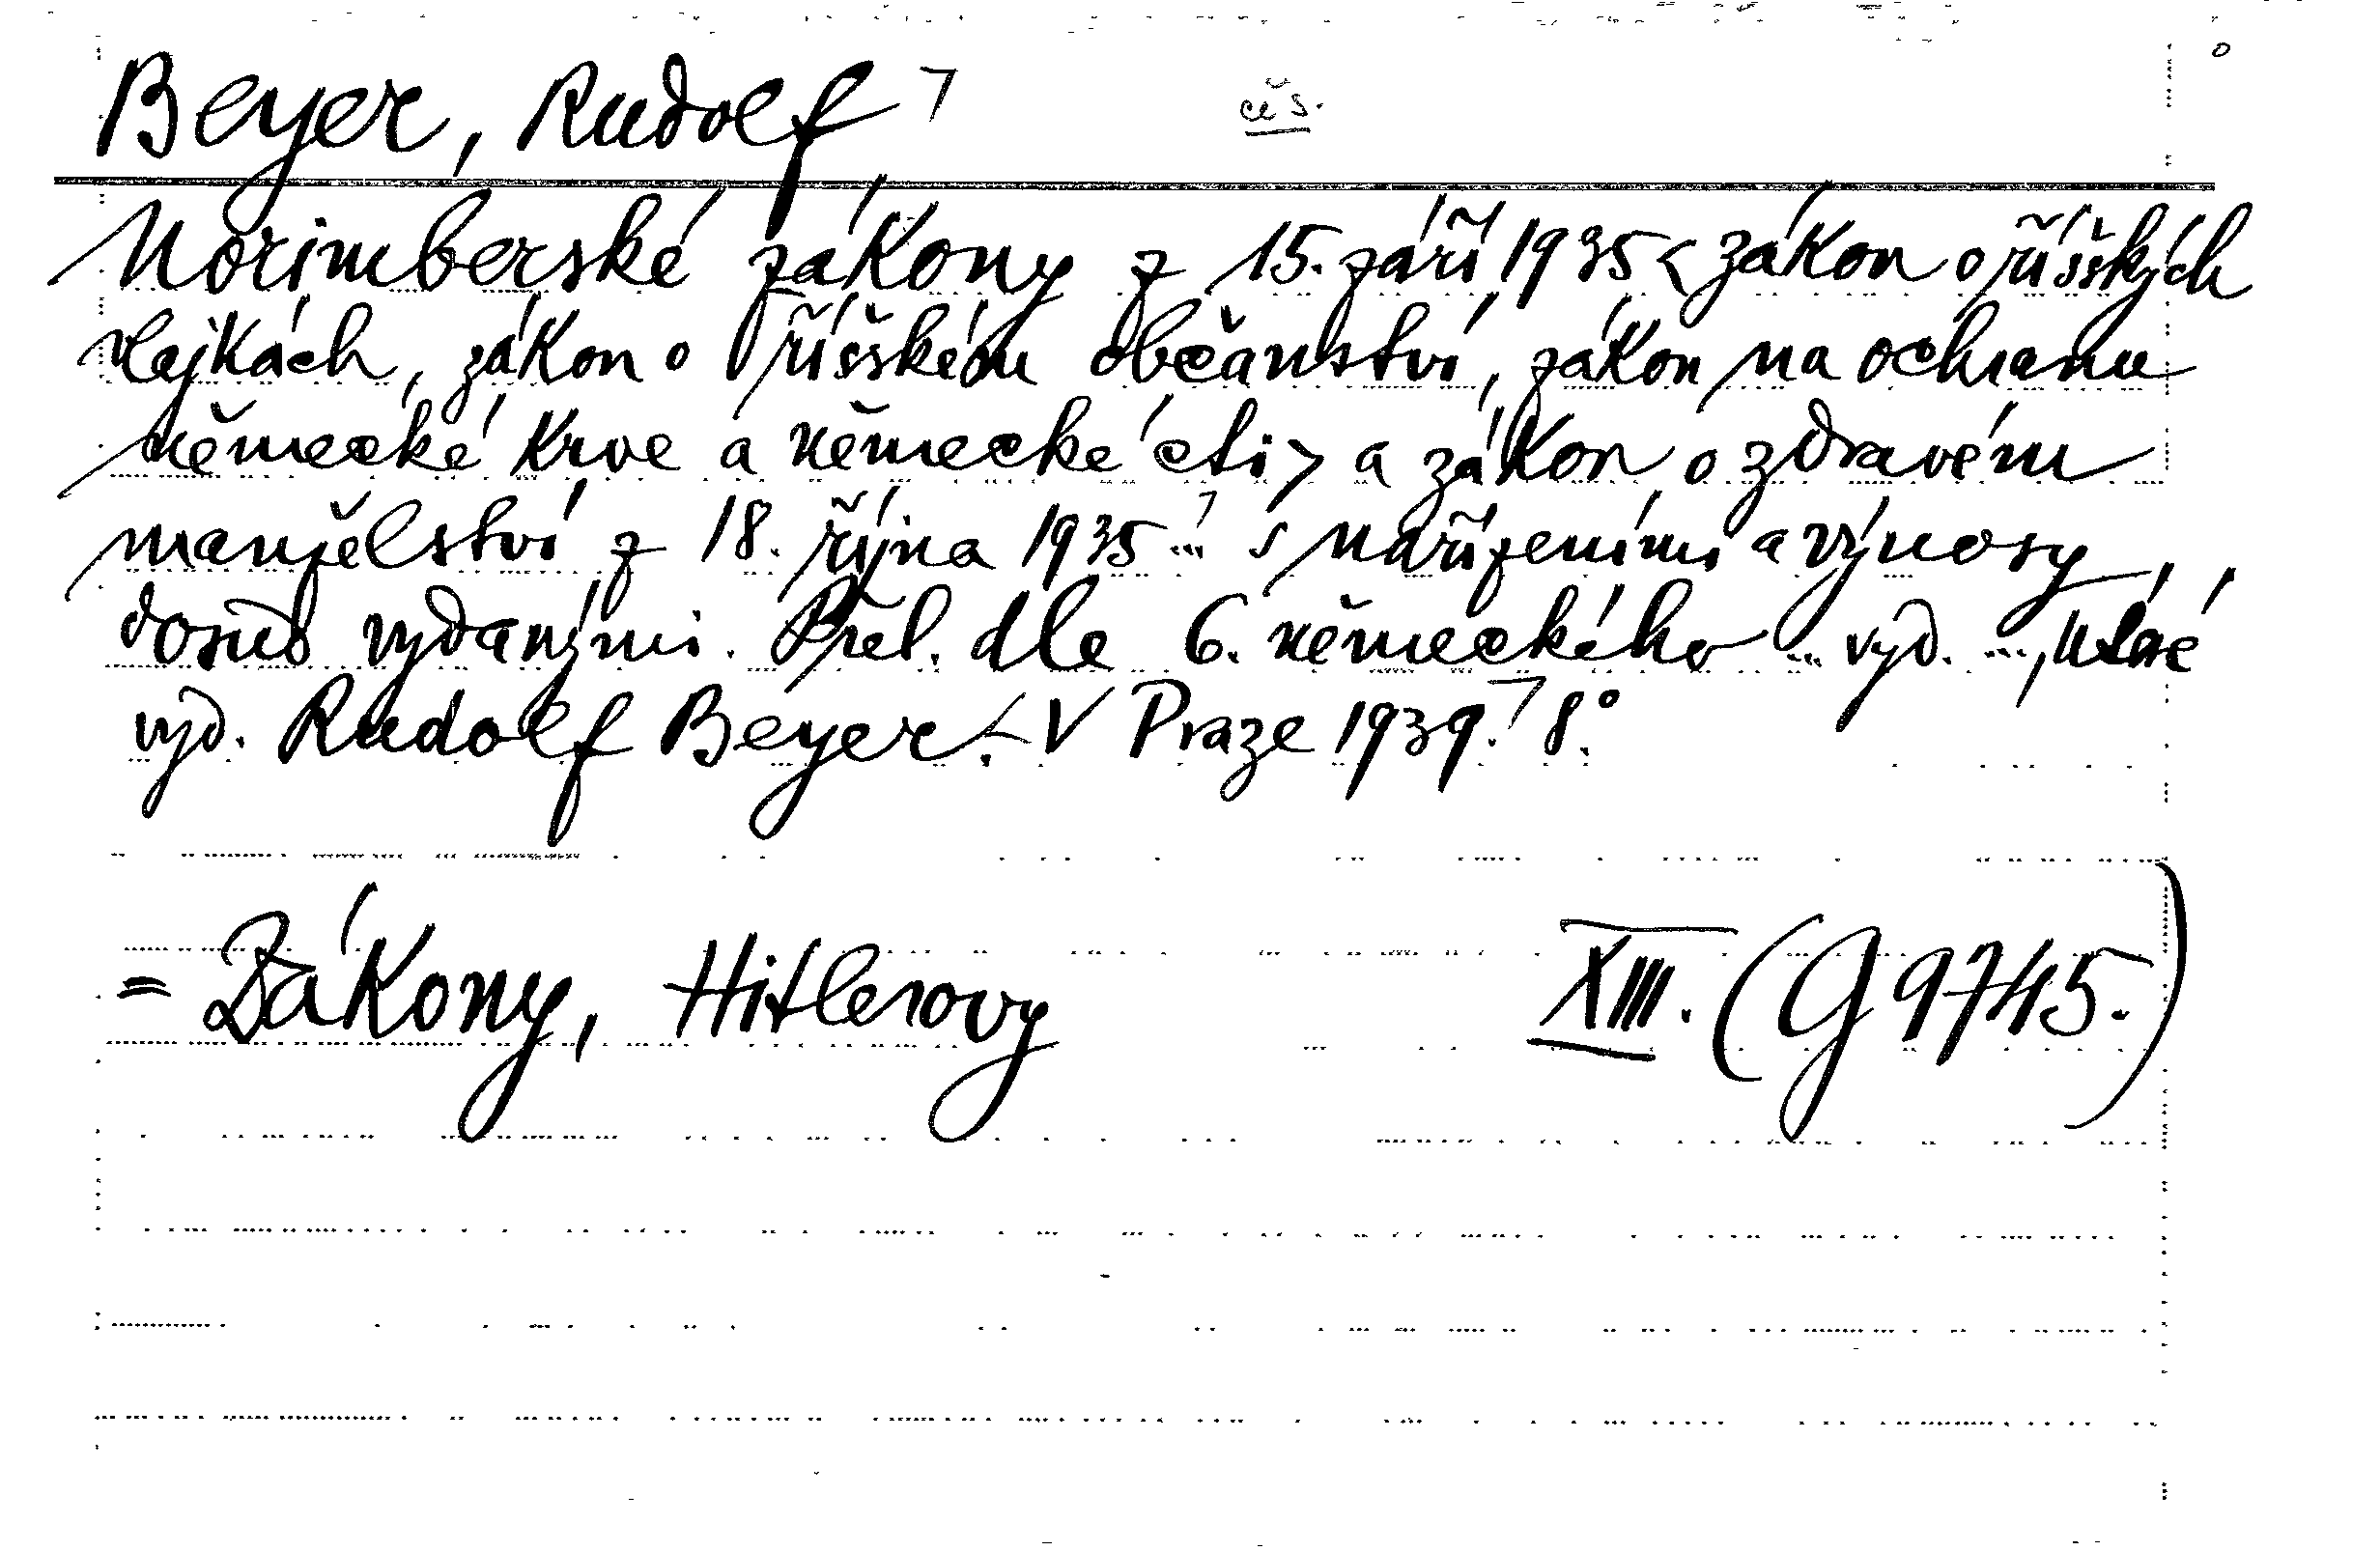 Beyer, Rudolf ⌝ čes.
Norimberské zákony z 15. září 1935 < zákon o říšských
vlajkách, zákon o říšském občanství, zákon na ochranu
německé krve a německé cti > a zákon o zdravém
manželství z 18. října 1935 ... ⌝ s nařízeními a výnosy,
dosud vydanými. Přel. dle 6. německého ... vyd. ...,
vyd. Rudolf Beyer. - V Praze 1939. ⌝ 8°.
= Zákony, Hitlerovy XIII. (G 9745.)